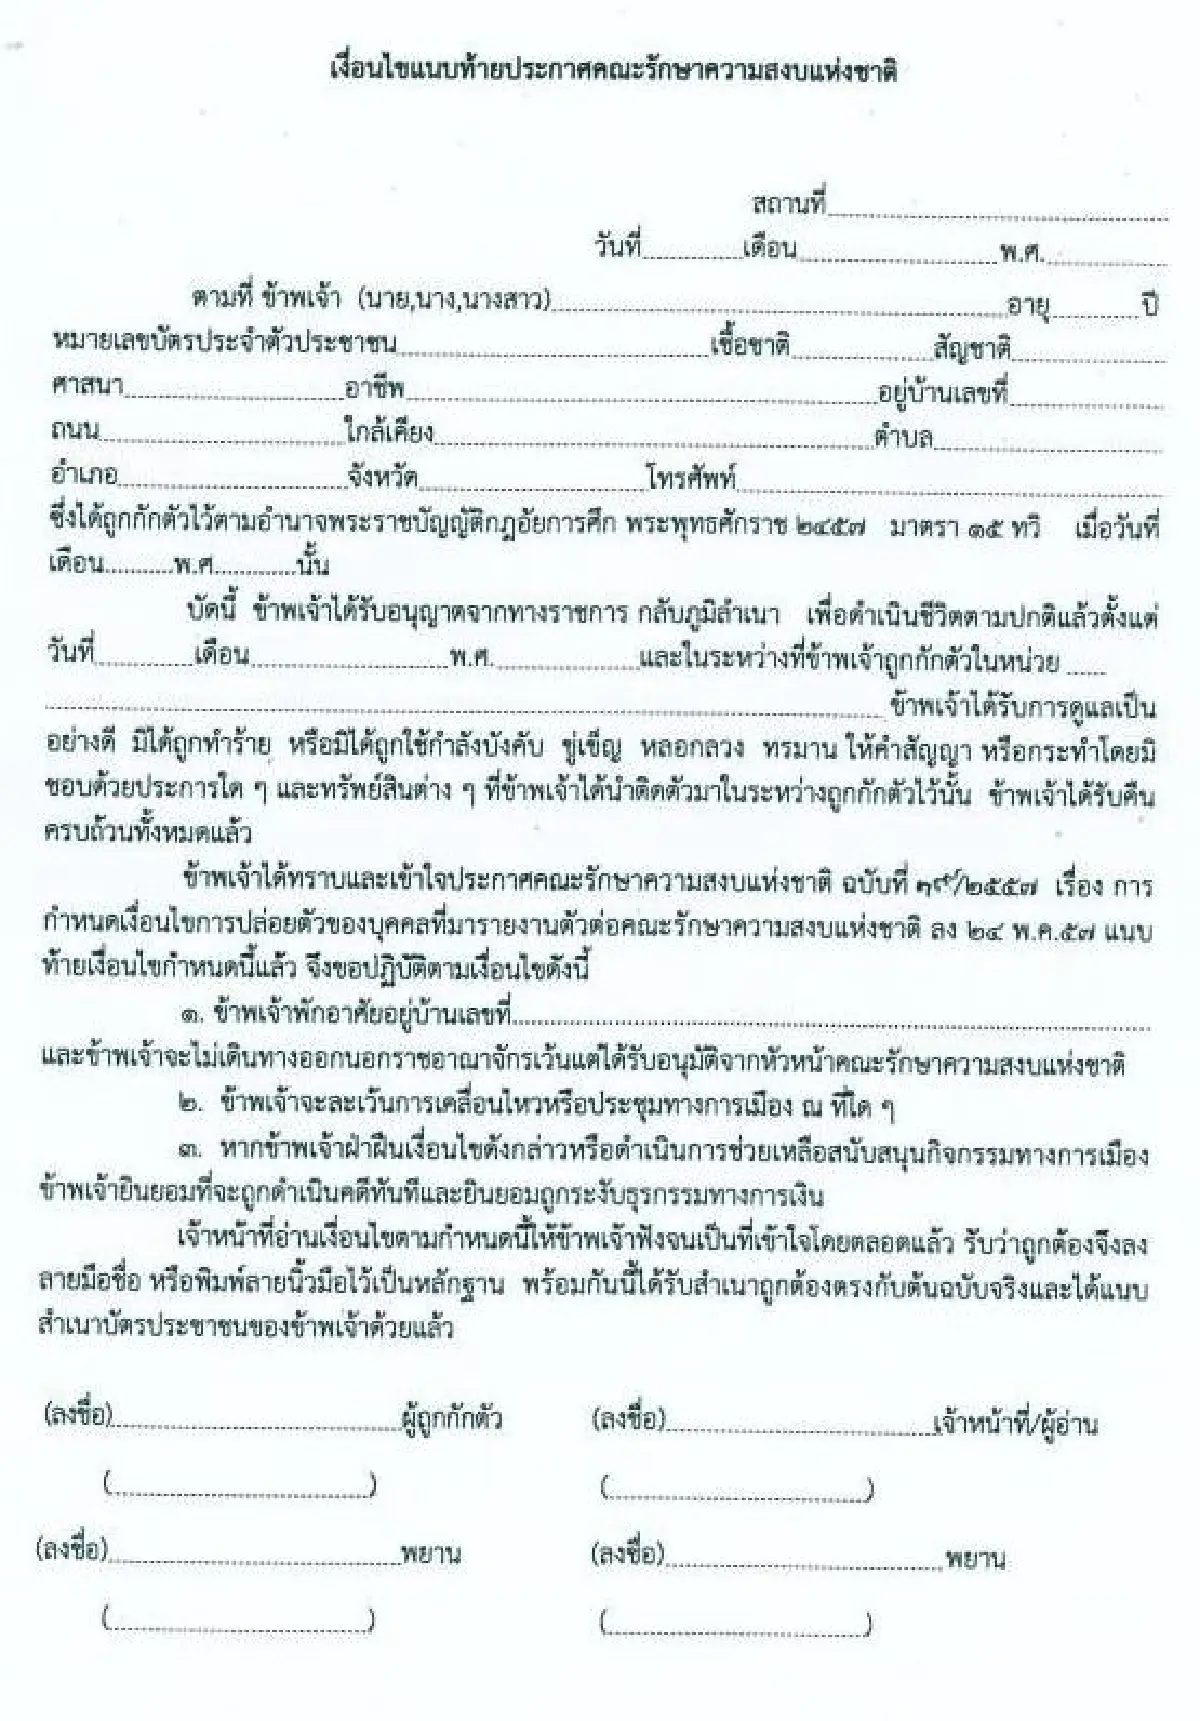 เงื่อนไขแนบท้ายประกาศคณะรักษาความสงบแห่งชาติ
สถานที่
วันที่ เดือน พ.ศ.
ตามที่ ข้าพเจ้า (นาย,นาง,นางสาว) อายุ ปี
หมายเลขบัตรประจำตัวประชาชน เชื้อชาติ สัญชาติ
ศาสนา อาชีพ อยู่บ้านเลขที่
ถนน ใกล้เคียง ตำบล
อำเภอ จังหวัด โทรศัพท์
ซึ่งได้ถูกกักตัวไว้ตามอำนาจพระราชบัญญัติกฎอัยการศึก พระพุทธศักราช ๒๔๕๗ มาตรา ๑๕ ทวิ เมื่อวันที่
เดือน............พ.ศ..............นั้น
บัดนี้ ข้าพเจ้าได้รับอนุญาตจากทางราชการ กลับภูมิลำเนา เพื่อดำเนินชีวิตตามปกติแล้วตั้งแต่
วันที่ เดือน พ.ศ. และในระหว่างที่ข้าพเจ้าถูกกักตัวในหน่วย ......
ข้าพเจ้าได้รับการดูแลเป็น
อย่างดี มิได้ถูกทำร้าย หรือมิได้ถูกใช้กำลังบังคับ ขู่เข็ญ หลอกลวง ทรมาน ให้คำสัญญา หรือกระทำโดยมิ
ชอบด้วยประการใด ๆ และทรัพย์สินต่าง ๆ ที่ข้าพเจ้าได้นำติดตัวมาในระหว่างถูกกักตัวไว้นั้น ข้าพเจ้าได้รับคืน
ครบถ้วนทั้งหมดแล้ว
ข้าพเจ้าได้ทราบและเข้าใจประกาศคณะรักษาความสงบแห่งชาติ ฉบับที่ ๓๙/๒๕๕๗ เรื่อง การ
กำหนดเงื่อนไขการปล่อยตัวของบุคคลที่มารายงานตัวต่อคณะรักษาความสงบแห่งชาติ ลง ๒๔ พ.ค.๕๗ แนบ
ท้ายเงื่อนไขกำหนดนี้แล้ว จึงขอปฏิบัติตามเงื่อนไขดังนี้
๑. ข้าพเจ้าพักอาศัยอยู่บ้านเลขที่
และข้าพเจ้าจะไม่เดินทางออกนอกราชอาณาจักรเว้นแต่ได้รับอนุมัติจากหัวหน้าคณะรักษาความสงบแห่งชาติ
๒. ข้าพเจ้าจะละเว้นการเคลื่อนไหวหรือประชุมทางการเมือง ณ ที่ใด ๆ
๓. หากข้าพเจ้าฝ่าฝืนเงื่อนไขดังกล่าวหรือดำเนินการช่วยเหลือสนับสนุนกิจกรรมทางการเมือง
ข้าพเจ้ายินยอมที่จะถูกดำเนินคดีทันทีและยินยอมถูกระงับธุรกรรมทางการเงิน
เจ้าหน้าที่อ่านเงื่อนไขตามกำหนดนี้ให้ข้าพเจ้าฟังจนเป็นที่เข้าใจโดยตลอดแล้ว รับว่าถูกต้องจึงลง
ลายมือชื่อ หรือพิมพ์ลายนิ้วมือไว้เป็นหลักฐาน พร้อมกันนี้ได้รับสำเนาถูกต้องตรงกับต้นฉบับจริงและได้แนบ
สำเนาบัตรประชาชนของข้าพเจ้าด้วยแล้ว
(ลงชื่อ) ผู้ถูกกักตัว (ลงชื่อ) เจ้าหน้าที่/ผู้อ่าน
(..............................) (..............................)
(ลงชื่อ) พยาน (ลงชื่อ) พยาน
(..............................) (..............................)